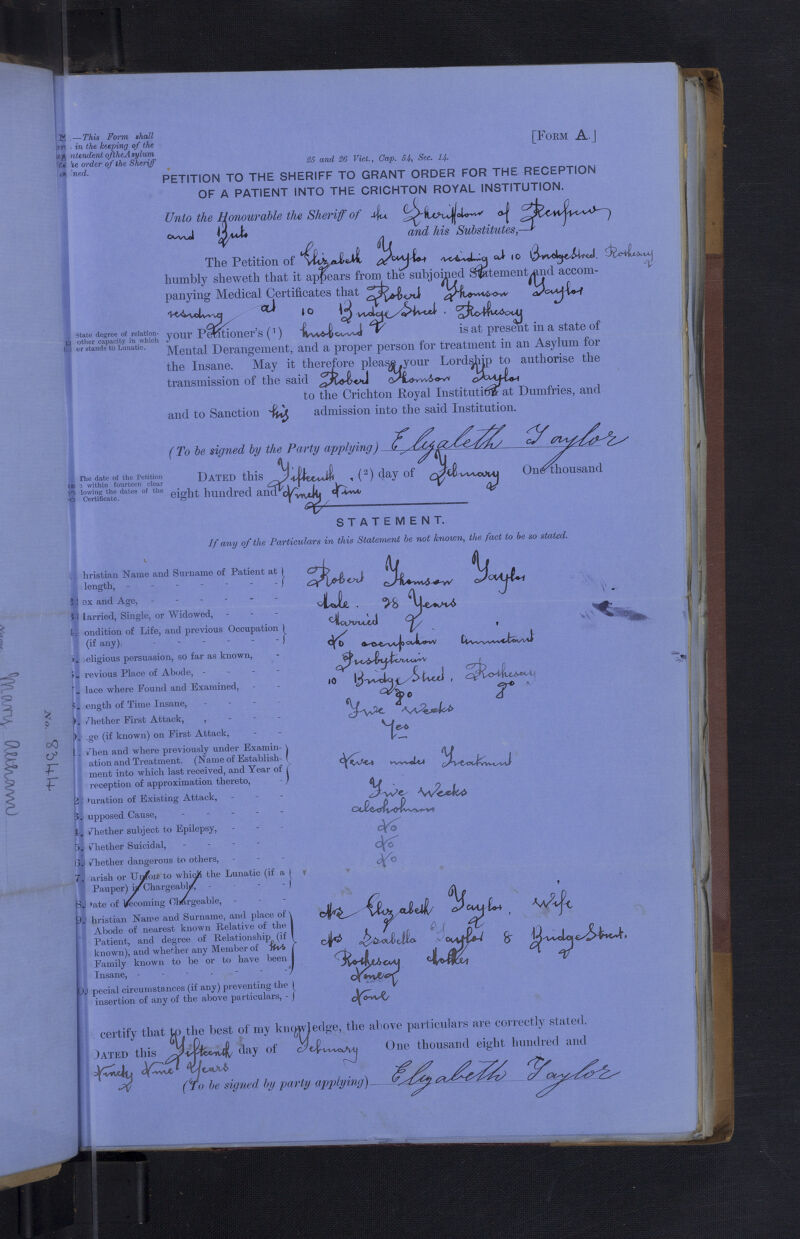 —This Form shall
in the keeping of the
ntendent of the Asylum
he order of the Sheriff
ned.
[FORM A.]
25 and 26 Vict., Cap. 54, Sec. 14.
PETITION TO THE SHERIFF TO GRANT ORDER FOR THE RECEPTION
OF A PATIENT INTO THE CRICHTON ROYAL INSTITUTION.
Unto the Honourable the Sheriff of the Sheriffdom of Renfrew
and Bute and his Substitutes,—
The Petition of Elizabeth Taylor residing at 10 Bridge Street. Rothesay
humbly sheweth that it appears from the subjoined Statement and accom-
panying Medical Certificates that Robert Thomson Taylor
residing at 10 Bridge Street. Rothesay
State degree of relation-
other capacity in which
er stands to Lunatic.
your Petitioner's (1) husband is at present in a state of
Mental Derangement, and a proper person for treatment in an Asylum for
the Insane. May it therefore please your Lordship to authorise the
transmission of the said Robert Thomson Taylor
to the Crichton Royal Institution at Dumfries, and
and to Sanction his admission into the said Institution.
(To be signed by the Party applying) Elizabeth Taylor
The date of the Petition
within fourteen clear
lowing the dates of the
Certificate.
DATED this Fifteenth, (2) day of February One thousand
eight hundred and Ninety Nine
STATEMENT.
If any of the Particulars in this Statement be not known, the fact to be so stated.
hristian Name and Surname of Patient at
length, - Robert Thomson Taylor
ex and Age, - Male. 28 Years
Married, Single, or Widowed, - Married
ondition of Life, and previous Occupation
(if any). No occupation
eligious persuasion, so far as known, Presbyterian
revious Place of Abode, - 10 Bridge Street, Rothesay
lace where Found and Examined, - Do Do
ength of Time Insane, - Five Weeks
Whether First Attack, Yes
ge (if known) on First Attack, —
When and where previously under Examin-
ation and Treatment. (Name of Establish-
ment into which last received, and Year of
reception of approximation thereto, Never under Treatment
uration of Existing Attack, - Five Weeks
upposed Cause, - alcoholism
Whether subject to Epilepsy, - No
Whether Suicidal, - No
Whether dangerous to others, - No
arish or Union to which the Lunatic (if a
Pauper) is Chargeable, -
ate of becoming Chargeable, -
hristian Name and Surname, and place of
Abode of nearest known Relative of the
Patient, and degree of Relationship (if
known), and whether any Member of his
Family known to be or to have been
Insane, -
Mrs Elizabeth Taylor, Wife
Mrs Isabella Taylor 8 Bridge Street,
Rothesay Mother
None
pecial circumstances (if any) preventing the
insertion of any of the above particulars, - None
certify that to the best of my knowledge, the above particulars are correctly stated.
DATED this Fifteenth day of February One thousand eight hundred and
Ninety Nine Years
(To be signed by party applying) Elizabeth Taylor
No. 8344